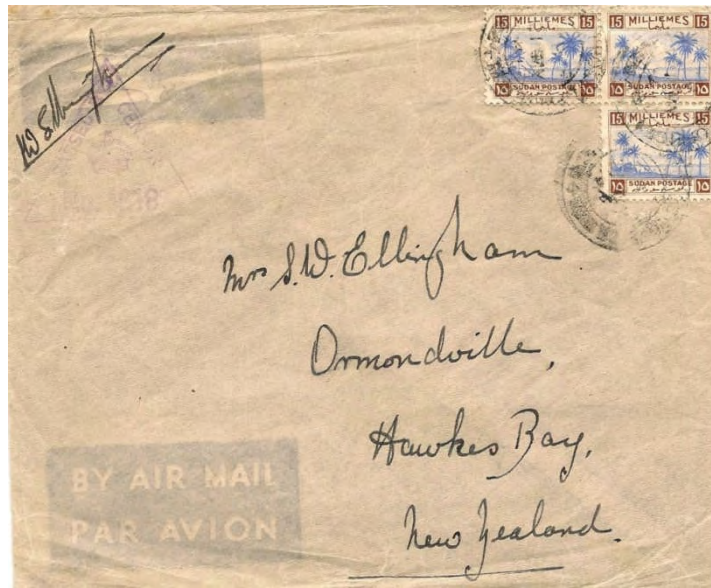 15 MILLIEMES 15
SUDAN POSTAGE
١٥ ١٥
15 MILLIEMES 15
SUDAN POSTAGE
١٥ ١٥
15 MILLIEMES 15
SUDAN POSTAGE
١٥ ١٥
Mrs S.W. Ellingham
Ormondville,
Hawkes Bay,
New Zealand.
BY AIR MAIL
PAR AVION